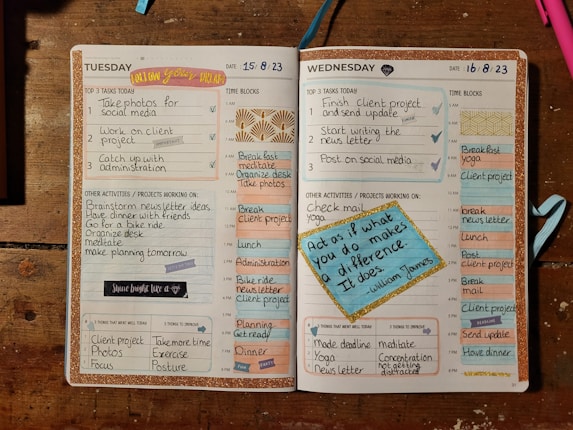 TUESDAY
FOLLOW your DREAM
DATE : 15/8/23
TOP 3 TASKS TODAY
1 Take photos for
social media
2 Work on client
project
3 Catch up with
administration
OTHER ACTIVITIES / PROJECTS WORKING ON:
Brainstorm newsletter ideas
Have dinner with friends
Go for a bike ride
Organize desk
meditate
make planning tomorrow
Shine bright like a
3 THINGS THAT WENT WELL TODAY
3 THINGS TO IMPROVE
Client project
Take more time
Photos
Exercise
Focus
Posture
TIME BLOCKS
Breakfast
meditate
Organize desk
Take photos
Break
Client project
Lunch
Administration
Bike ride
newsletter
Client project
Planning
Get ready
Dinner
WEDNESDAY
DATE : 16/8/23
TOP 3 TASKS TODAY
1 Finish client project
and send update
2 Start writing the
news letter
3 Post on social media
OTHER ACTIVITIES / PROJECTS WORKING ON:
Check mail
Yoga
Act as if what
you do makes
a difference.
It does.
-William James
3 THINGS THAT WENT WELL TODAY
3 THINGS TO IMPROVE
Made deadline
meditate
Yoga
Concentration
News letter
not getting
distracted
TIME BLOCKS
Breakfast
yoga
Client project
break
news letter
Lunch
Post
client project
Break
mail
Client project
DEADLINE
Send update
Have dinner